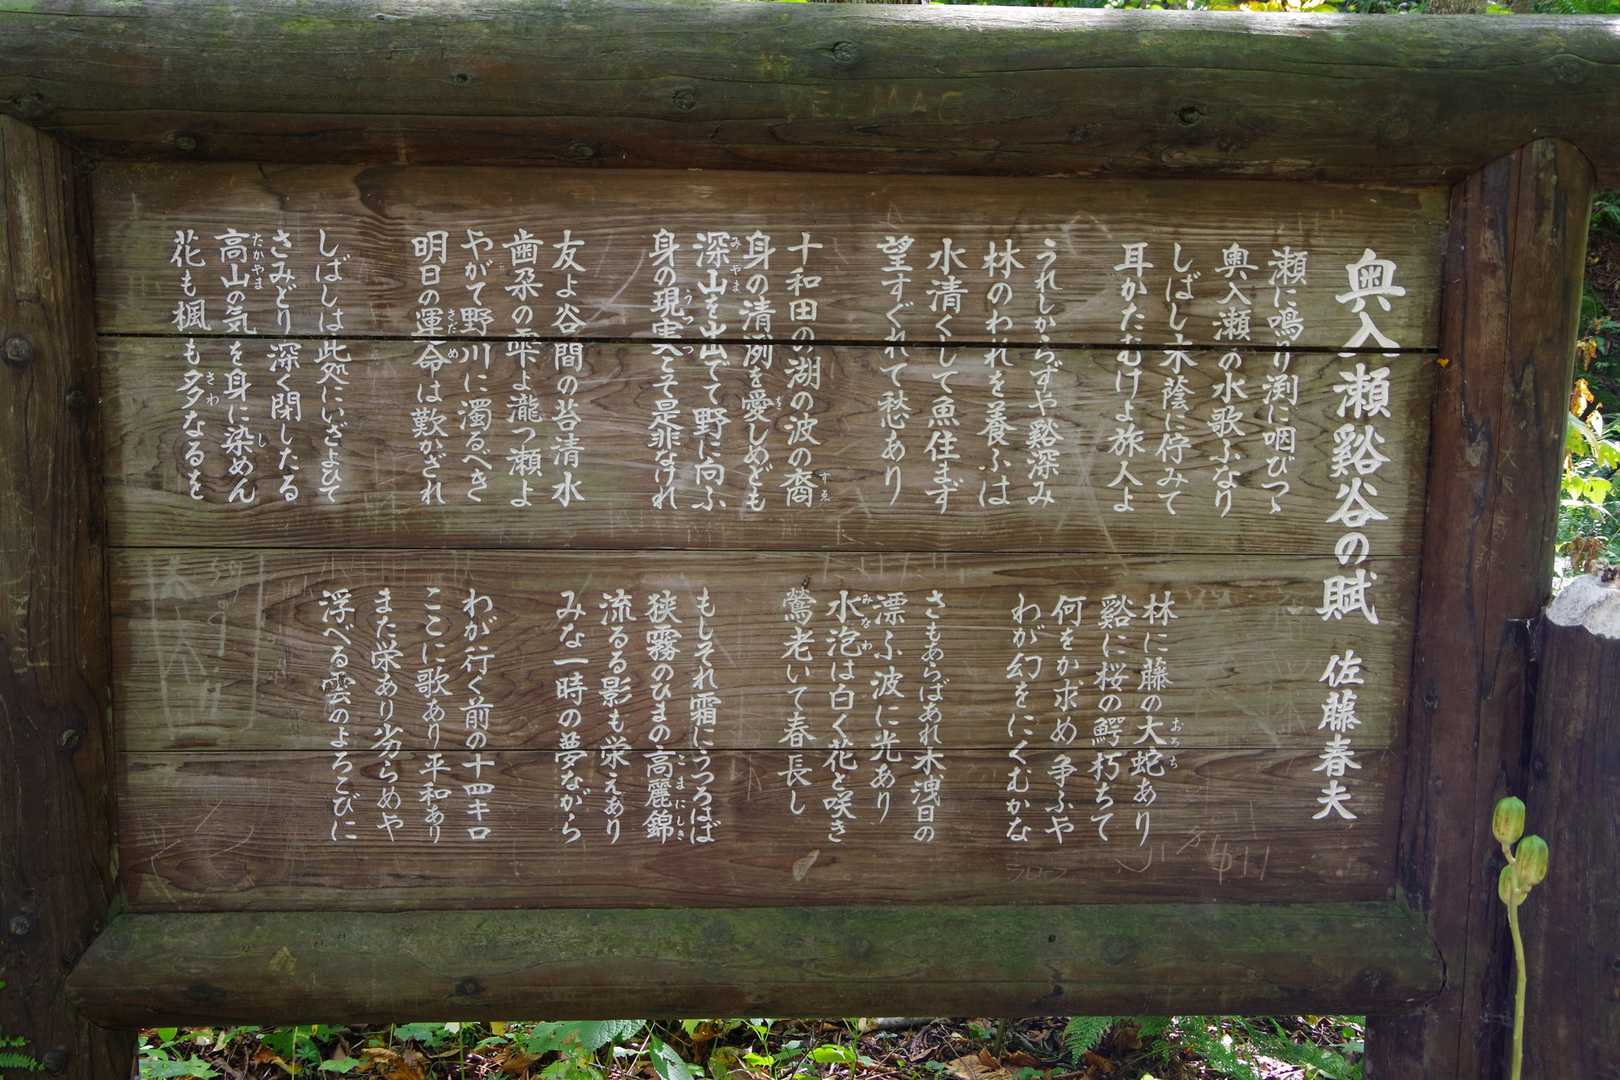 奥入瀬谿谷の賦　佐藤春夫
瀬に鳴り渕に咽びつゝ
奥入瀬の水歌ふなり
しばし木蔭に佇みて
耳かたむけよ旅人よ
うれしからずや谿深み
林のわれを養ふは
水清くして魚住まず
望すぐれて愁あり
すゑ
十和田の湖の波の裔
を
身の清冽を愛しめども
みやま
深山を出でて野に向ふ
うつつ
身の現実こそ是非なけれ
友よ谷間の苔清水
歯朶の雫よ瀧つ瀬よ
やがて野川に濁るべき
さだめ
明日の運命は歎かざれ
しばしは此処にいざよひて
さみどり深く閉したる
たかやま し
高山の気を身に染めん
さわ
花も楓も多なるを
林に藤の大蛇あり
おろち
谿に桜の鰐朽ちて
何をか求め争ふや
わが幻をにくむかな
さもあらばあれ木洩日の
漂ふ波に光あり
みなわ
水泡は白く花と咲き
鶯老いて春長し
もしそれ霜にうつろはば
こまにしき
狭霧のひまの高麗錦
流るる影も栄えあり
みな一時の夢ながら
わが行く前の十四キロ
ここに歌あり平和あり
また栄あり劣らめや
浮べる雲のよろこびに